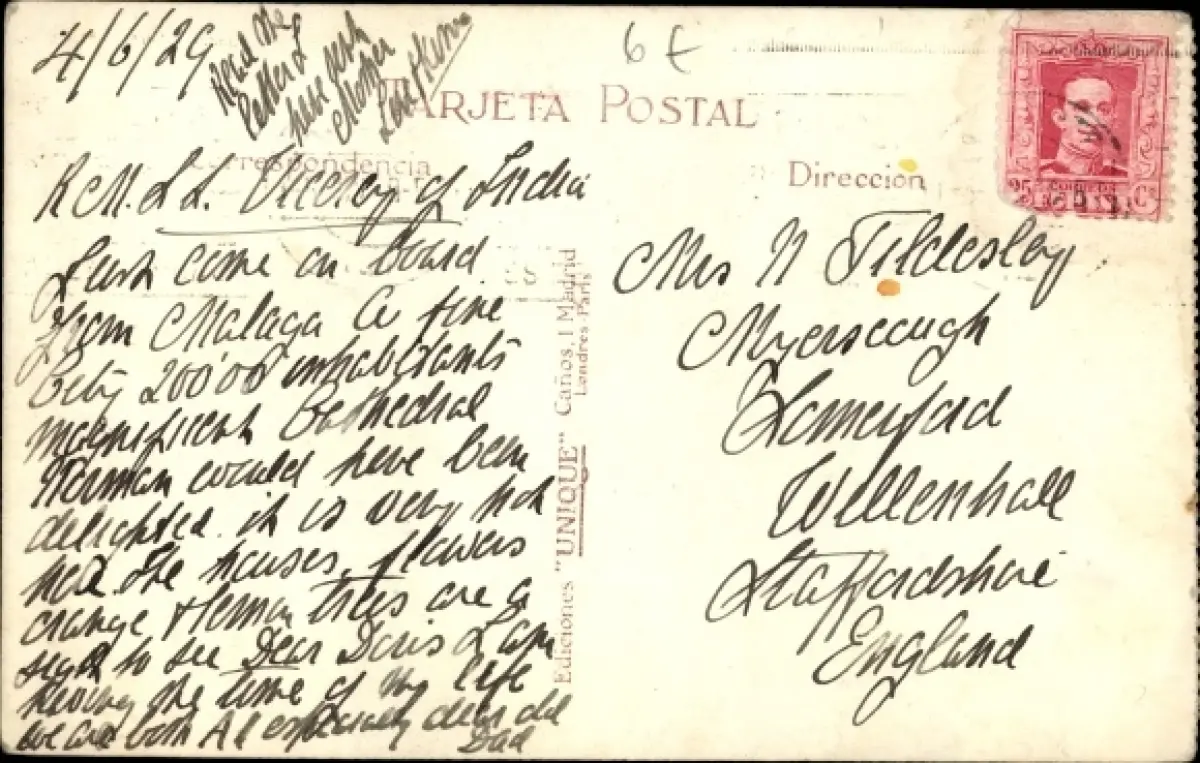 4/6/29
Read the
letter I
have sent
Mother
Love
6 €
TARJETA POSTAL
Correspondencia
Dirección
25 CORREOS Cs
R.M.S.S. Viceroy of India
Just come on board
from Malaga A fine
City 200'00 inhabitants
magnificent Cathedral
Norman would have been
delighted. it is very hot
here The houses, flowers
orange & lemon trees are a
sight to see Dear Doris I am
having the time of my life
we are both A1 especially dear old
Dad
Ediciones "UNIQUE" Caños, 1 Madrid
Londres-Paris
Mrs N Tildesley
Myerscough
Somerford
Willenhall
Staffordshire
England